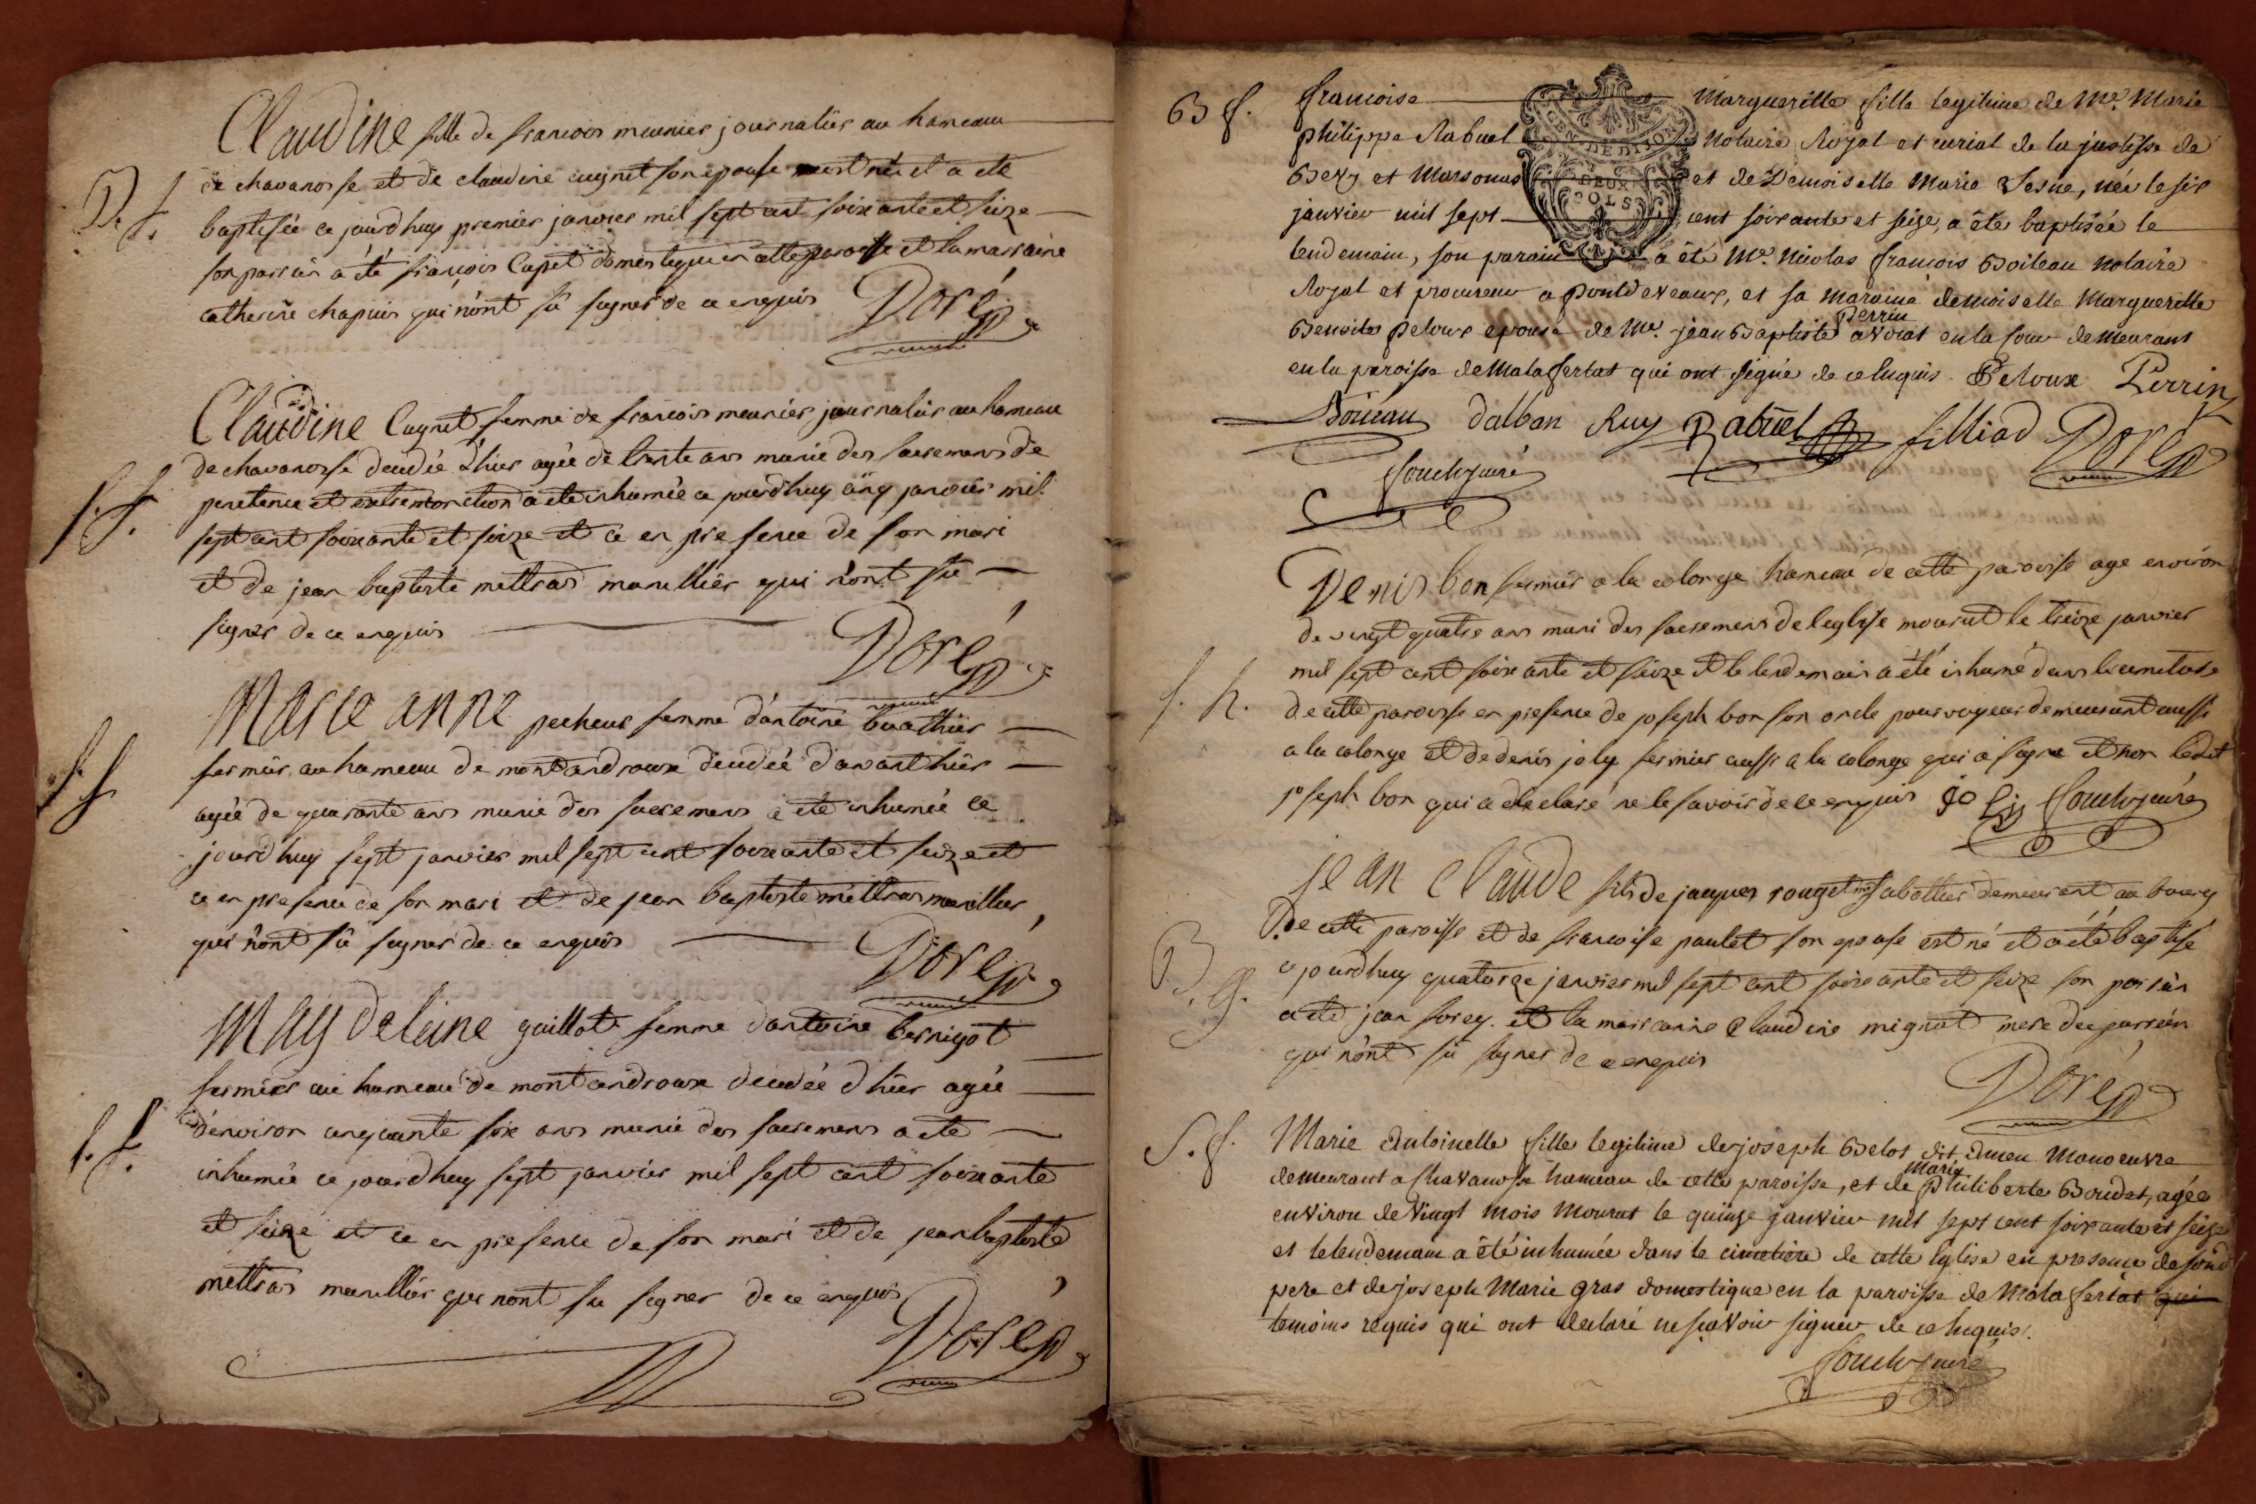 Claudine fille de francois meunier journalier au hameau
de chavanosse et de claudine cugnet son epouse est née et a eté
B. f.
baptisée ce jourdhuy premier janvier mil sept cent soixante et seize
son parrain a été françois Cugnet domestique en cette paroisse et la marraine
catherine chapuis qui n'ont sû signer de ce enquis Doré
Claudine Cugnet femme de francois meunier journalier au hameau
de chavanosse decedée d'hier agée de trente ans munie des sacremens de
S. f.
penitence et extremonction a eté inhumée ce jourdhuy cinq janvier mil
sept cent soixante et seize et ce en presence de son mari
et de jean baptiste mettras marillier qui n'ont sû
signer de ce enquis
Doré
Marie anne pecheur femme d'antoine buathier
fermier au hameau de montandroux decedée d'avant hier
S. f.
agée de quarante ans munie des sacremens a eté inhumée ce
jourdhuy sept janvier mil sept cent soixante et seize et
ce en presence de son mari et de jean baptiste mettras marillier
qui n'ont sû signer de ce enquis
Doré
Magdeleine guillot femme dantoine bernigot
fermier au hameau de montandroux decedée d'hier agée
S. f.
d'environ cinquante six ans munie des sacremens a eté
inhumée ce jourdhuy sept janvier mil sept cent soixante
et seize et ce en presence de son mari et de jean baptiste
mettras marillier qui n'ont su signer de ce enquis
Doré
B f.
francoise Margueritte fille legitime de Me. Marie
philippe Rabuel Notaire Royal et curial de la justisse de
GEN. DE DIJON
DEUX SOLS
Bevy et Marsonas et de Demoiselle Marie Vesne, née le six
janvier mil sept cent soixante et seize, a été baptisée le
lendemain, son parain a été Me. Nicolas francois Boileau notaire
Royal et procureur a pontdevaux, et sa maraine demoiselle Margueritte
Benoite peloux epouse de Me. jean Baptiste perrin avocat en la cour demeurant
en la paroisse de Malafertat qui ont signé de ce enquis. Peloux Perrin
Boileau Dalban Ruy Rabuel filliod Doré
Denis bon fermier a la colonge hameau de cette paroisse age environ
de vingt quatre ans muni des sacremens de leglise mourut le treize janvier
mil sept cent soixante et seize et le lendemain a été inhumé dans le cimetiere
S. h.
de cette paroisse en presence de joseph bon son oncle pourvoyeur demeurant aussi
a la colonge et de denis joly fermier aussi a la colonge qui a signé et non ledit
joseph bon qui a declaré ne le savoir de ce enquis joly
jean Claude fils de jacques rouget sabottier demeurant au bourg
de cette paroisse et de francoise paulet son epouse est né et a été baptisé
B. g.
ce jourdhuy quatorze janvier mil sept cent soixante et seize son parrain
a été jean forey et la marraine Claudine mignot mere du parrain
qui n'ont sû signer de ce enquis
Doré
S. f.
Marie Antoinette fille legitime de joseph Belot dit dmeu Manoeuvre
demeurant a Chavanosse hameau de cette paroisse, et de Marie philiberte Bondet, agée
environ de vingt mois mourut le quinze janvier mil sept cent soixante et seize
et le lendemain a été inhumée dans le cimetière de cette Eglise en presence de son
pere et de joseph Marie gras domestique en la paroisse de Malafertat
temoins requis qui ont declaré ne sçavoir signer de ce enquis.